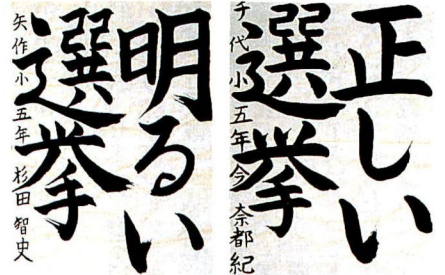 正しい
選挙
千代小五年今奈都紀
明るい
選挙
矢作小五年杉田智史